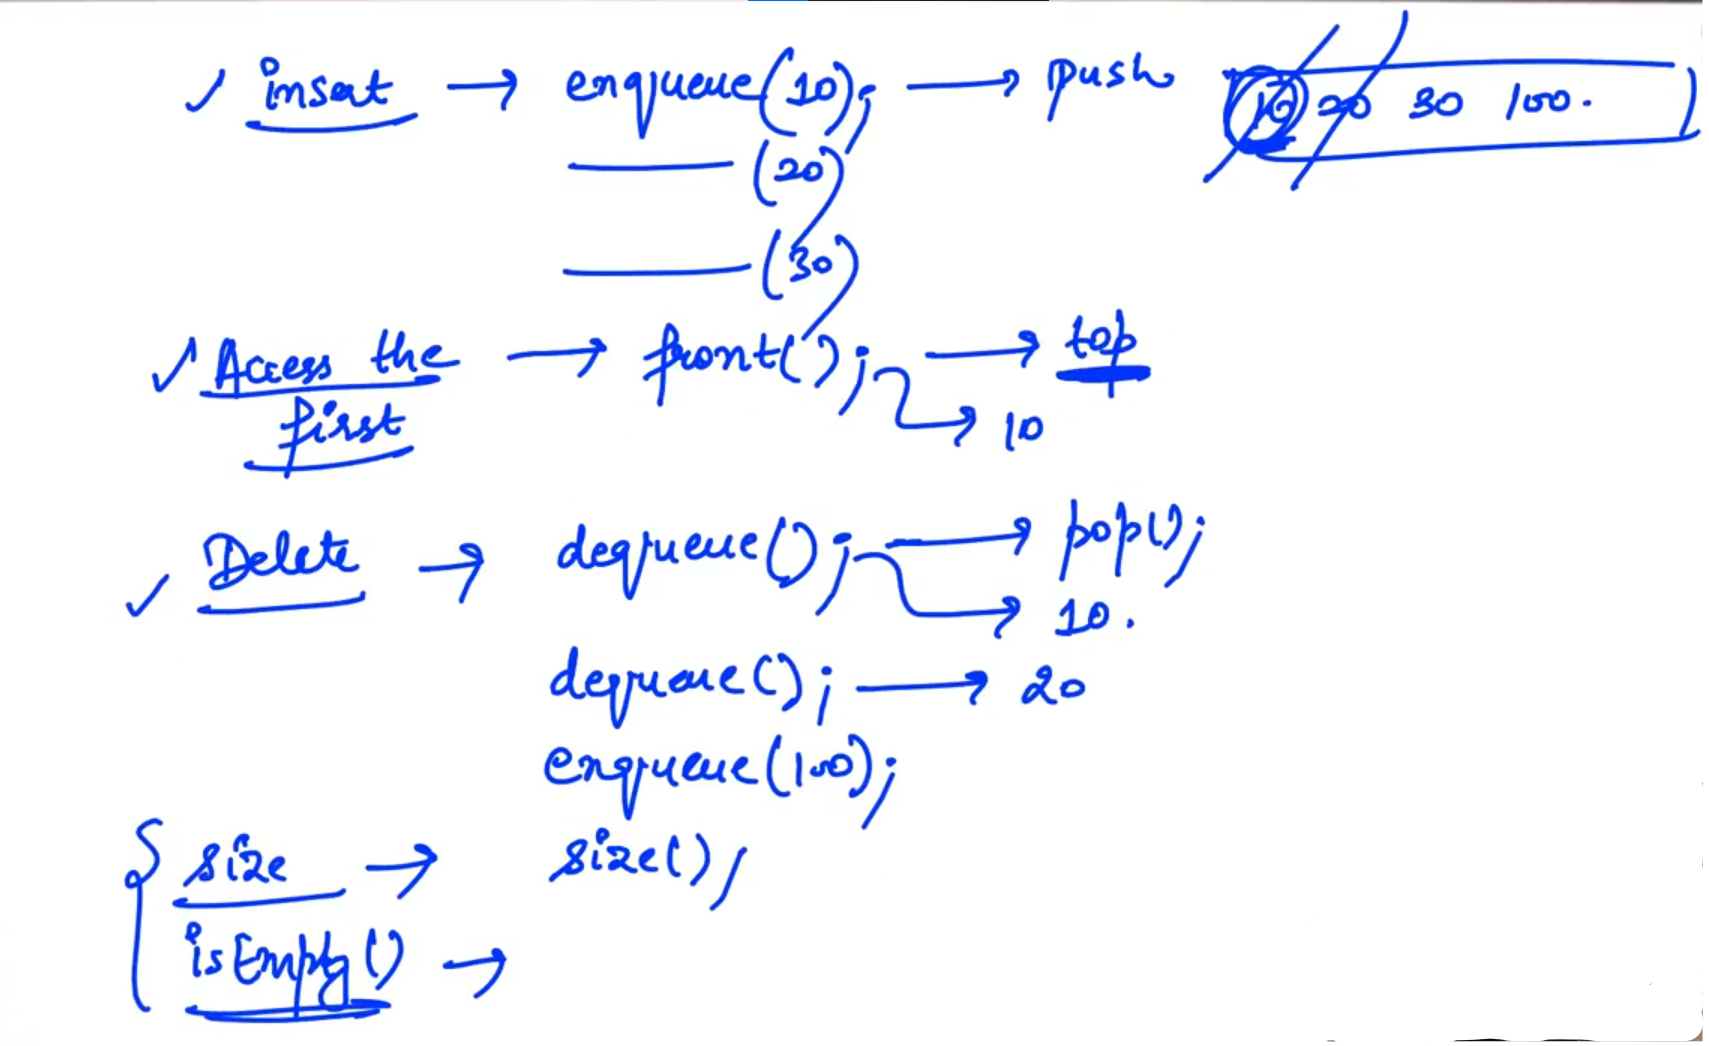 ✓ insert → enqueue(10); → push 10 20 30 100.
(20)
(30)
✓ Access the → front(); → top
first → 10
✓ Delete → dequeue(); → pop();
→ 10.
dequeue(); → 20
enqueue(100);
size → size();
isEmpty() →